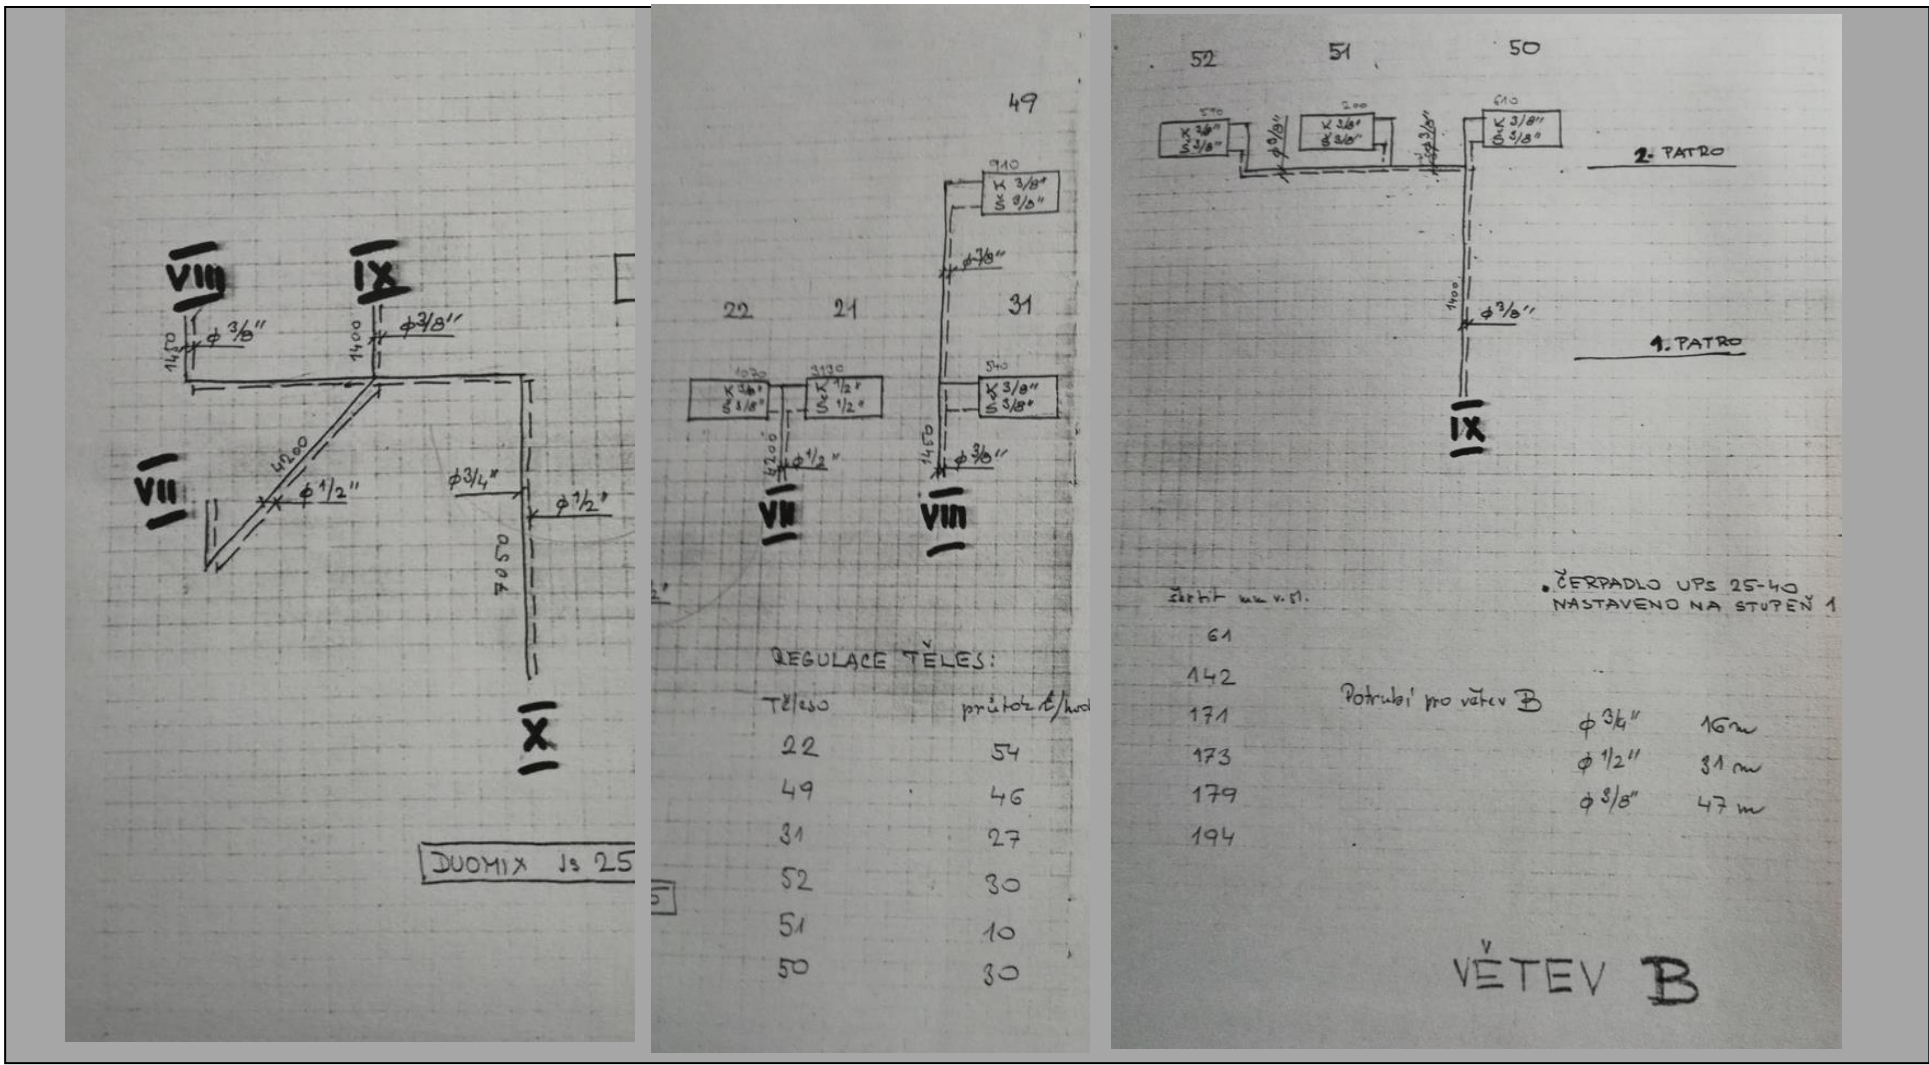 VIII
IX
1450
φ 3/8"
1400
φ3/8"
VII
4200
φ 1/2"
φ3/4"
φ 1/2"
7050
X
DUOMIX Js 25
49
910
K 3/8"
Š 3/8"
φ 3/8"
22
21
31
1070
3130
540
K 3/8"
Š 3/8"
K 1/2"
Š 1/2"
K 3/8"
Š 3/8"
4200
φ 1/2"
1450
φ 3/8"
VII
VIII
REGULACE TĚLES:
Těleso
průtok
22
54
49
46
31
27
52
30
51
10
50
30
52
51
50
200
610
K 3/8"
Š 3/8"
φ 3/8"
K 3/8"
Š 3/8"
φ 3/8"
K 3/8"
Š 3/8"
2. PATRO
1400
φ 3/8"
1. PATRO
IX
škrtit mm v.sl.
61
142
171
173
179
194
• ČERPADLO UPS 25-40
NASTAVENO NA STUPEŇ 1
Potrubí pro větev B
φ 3/4" 16 m
φ 1/2" 31 m
φ 3/8" 47 m
VĚTEV B